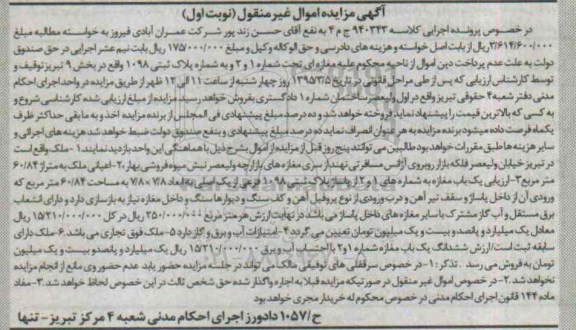 آگهی مزایده اموال غیر منقول (نوبت اول)
در خصوص پرونده اجرایی کلاسه ۹۴۰۳۴۳ ج م ۴ به نفع آقای حسن زند پور شرکت عمران آبادی فیروز به خواسته مطالبه مبلغ
۲/۶۱۴/۶۰۰/۰۰۰ ریال از بابت اصل خواسته و هزینه های دادرسی و حق الوکاله وکیل و مبلغ ۱۷۵/۰۰۰/۰۰۰ ریال بابت نیم عشر اجرایی در حق صندوق
دولت به علت عدم پرداخت دین اموال از ناحیه محکوم علیه مغازه ای تحت شماره ۱ و ۲ و به شماره پلاک ثبتی ۱۰۹۸ واقع در بخش ۹ تبریز توقیف و
توسط کارشناس ارزیابی که پس از طی مراحل قانونی در تاریخ ۱۳۹۵/۳/۵ روز چهارشنبه از ساعت ۱۱ الی ۱۲ ظهر از طریق مزایده در واحد اجرای احکام
مدنی دفتر شعبه ۴ حقوقی تبریز واقع در اول ولیعصر ساختمان شماره ۱ دادگستری بفروش خواهد رسید. مزایده از مبلغ ارزیابی شده کارشناسی شروع و
به کسی که بالاترین قیمت را پیشنهاد نماید فروخته خواهد شد و ده درصد مبلغ پیشنهادی فی المجلس از برنده مزایده اخذ و به مابقی حداکثر ظرف
یکماه فرصت داده میشود برنده مزایده به هر عنوان انصراف نماید ده درصد مبلغ پیشنهادی و بنفع صندوق دولت ضبط خواهد شد هزینه های اجرائی و
سایر هزینه ها طبق مقررات خواهد بود طالبین می توانند پنج روز قبل از مزایده از اموال بشرح ذیل با هماهنگی این واحد بازدید نمایند: ۱- ملک واقع است
در تبریز خیابان ولیعصر فلکه بازار روبروی آژانس مسافرتی نهند از سری مغازه های بازارچه ولیعصر نبش میوه فروشی بهار ۲- اعیانی ملک به متراژ ۶۰/۸۴
متر مربع ۳- ارزیابی یک باب مغازه به شماره های ۱ و ۲ از پلاک ثبتی ۱۰۹۸ فرعی از یک اصلی به ابعاد ۷/۸ × ۷/۸ به مساحت ۶۰/۸۴ متر مربع که
ورودی آن از داخل پاساژ و سقف تیر آهن و درب ورودی از نوع پروفیل آهن و کف سنگ و دیوارها سنگ و داخل مغازه نیاز به بازسازی دارد و دارای انشعاب
برق مستقل و آب گاز مشترک با سایر مغازه های داخل پاساژ می باشد در نهایت ارزش هر متر مربع ۲۵۰/۰۰۰/۰۰۰ ریال در کل ۱۵/۲۱۰/۰۰۰/۰۰۰ ریال
معادل یک میلیارد و پانصد و بیست و یک میلیون تومان تعیین می گردد ۴- امتیازات آب و برق و گاز دارد ۵- ملک فوق تجاری می باشد ۶- ملک دارای
سابقه ثبت است/ ارزش ششدانگ یک باب مغازه شماره ۱ و ۲ با احتساب آب و برق ۱۵/۲۱۰/۰۰۰/۰۰۰ ریال یک میلیارد و پانصد و بیست و یک میلیون
تومان به فروش می رسد. تذکر: ۱- در خصوص سرقفلی های توقیفی مالک می تواند در جلسه مزایده حضور یابد عدم حضور وی مانع از انجام مزایده
نخواهد شد. ۲- در خصوص اموال غیر منقول در صورتیکه مزایده قبلا به اجاره واگذار شده حق شخص ثالث در این خصوص لحاظ خواهد شد. ۳- مفاد
ماده ۱۴۴ قانون اجرای احکام مدنی در خصوص محکوم له خریدار مجری خواهد بود
ح/۱۰۵۷ دادورز اجرای احکام مدنی شعبه ۴ مرکز تبریز - تنها